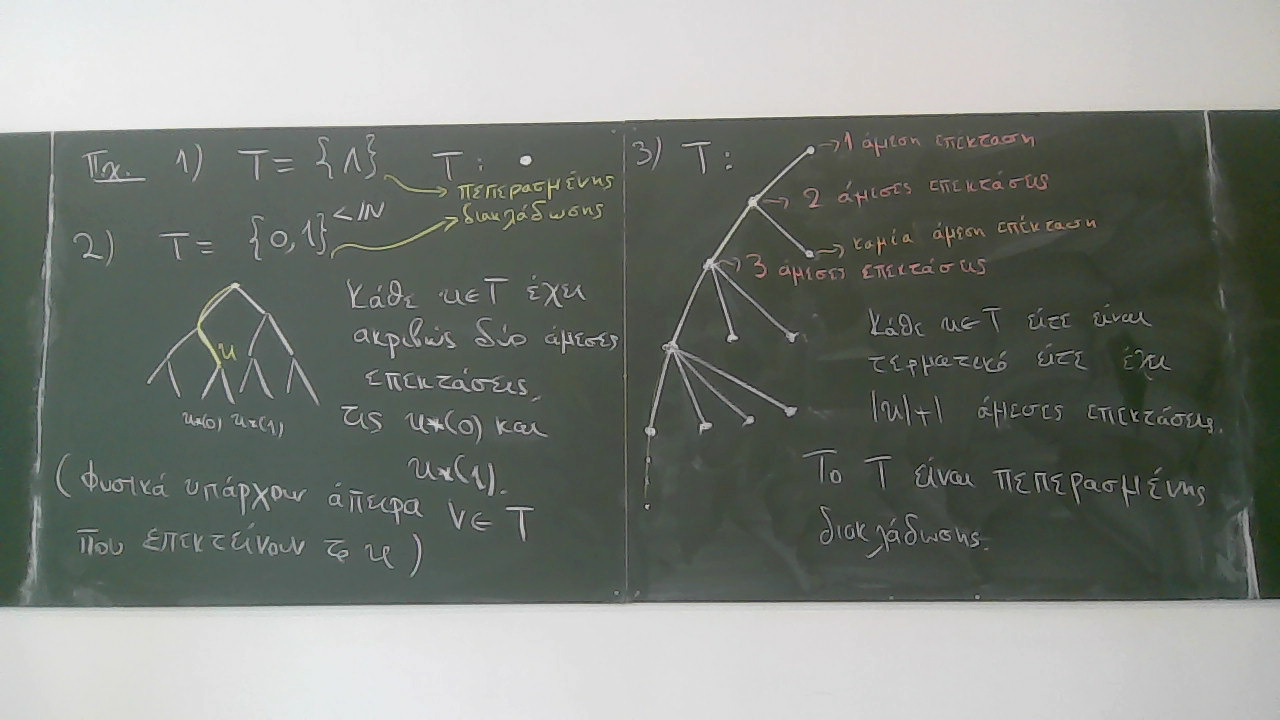 Πχ. 1) T = {Λ} T : •
→ πεπερασμένης
διακλάδωσης
2) T = {0,1}^{<ℕ}
Κάθε u∈T έχει
ακριβώς δύο άμεσες
επεκτάσεις,
τις u*(0) και
u*(1).
u
u*(0) u*(1)
(Φυσικά υπάρχουν άπειρα v∈T
που επεκτείνουν το u)
3) T :
→ 1 άμεση επέκταση
→ 2 άμεσες επεκτάσεις
→ καμία άμεση επέκταση
→ 3 άμεσες επεκτάσεις
Κάθε u∈T είτε είναι
τερματικό είτε έχει
|u|+1 άμεσες επεκτάσεις.
Το T είναι πεπερασμένης
διακλάδωσης.